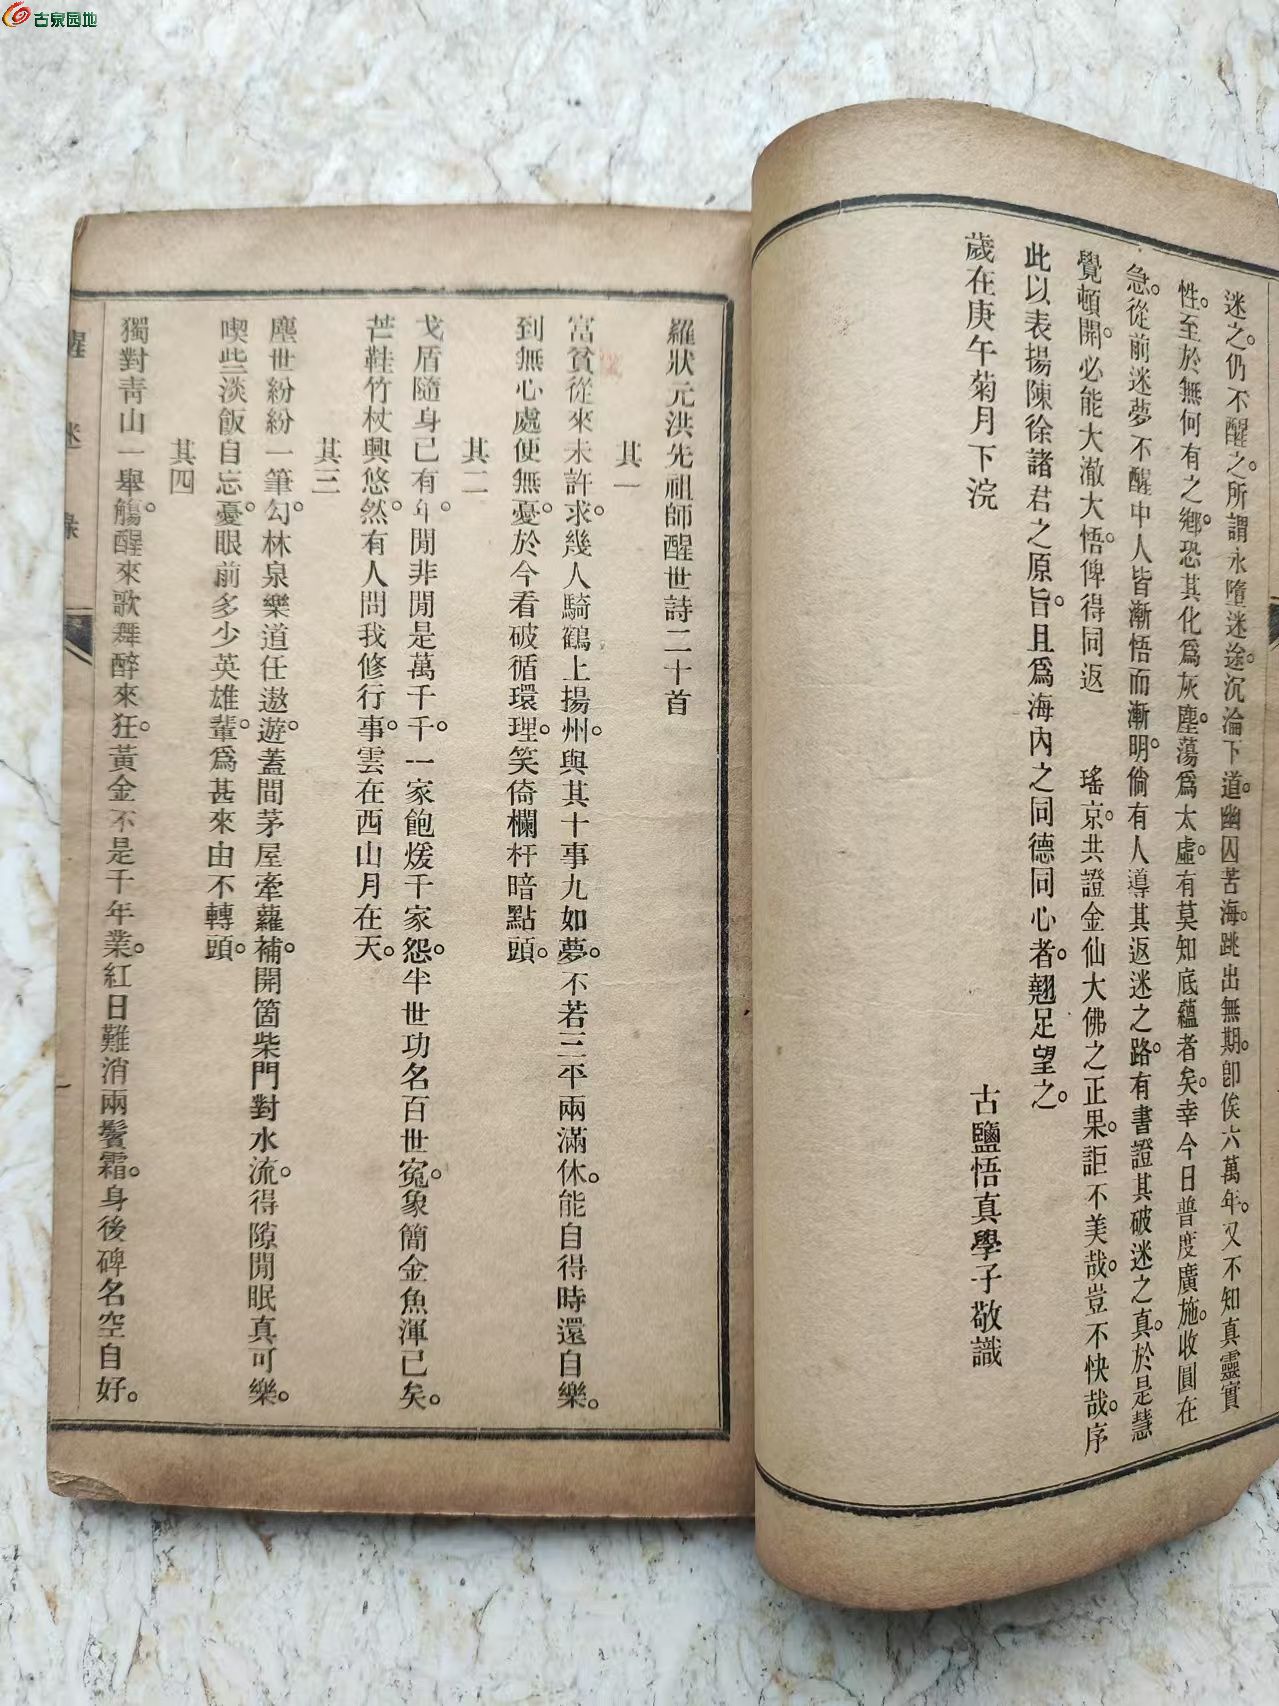 古泉园地
迷之。仍不醒之。所謂永墮迷途。沉淪下道。幽囚苦海。跳出無期。卽俟六萬年。又不知真靈實
性。至於無何有之鄉。恐其化爲灰塵。蕩爲太虛。有莫知底蘊者矣。幸今日普度廣施。收圓在
急。從前迷夢不醒中人皆漸悟而漸明。倘有人導其返迷之路。有書證其破迷之真。於是慧
覺頓開。必能大澈大悟。俾得同返 瑤京。共證金仙大佛之正果。詎不美哉。豈不快哉。序
此以表揚陳徐諸君之原旨。且爲海內之同德同心者。翹足望之。
歲在庚午菊月下浣
古鹽悟真學子敬識
羅狀元洪先祖師醒世詩二十首
其一
富貧從來未許求。幾人騎鶴上揚州。與其十事九如夢。不若三平兩滿休。能自得時還自樂。
到無心處便無憂。於今看破循環理。笑倚欄杆暗點頭。
其二
戈盾隨身已有年。閒非閒是萬千千。一家飽煖千家怨。半世功名百世寃。象簡金魚渾已矣。
芒鞋竹杖興悠然。有人問我修行事。雲在西山月在天。
其三
塵世紛紛一筆勾。林泉樂道任遨遊。蓋間茅屋牽蘿補。開箇柴門對水流。得隙閒眠真可樂。
喫些淡飯自忘憂。眼前多少英雄輩。爲甚來由不轉頭。
其四
獨對青山一舉觴。醒來歌舞醉來狂。黃金不是千年業。紅日難消兩鬢霜。身後碑名空自好。
醒迷錄
一